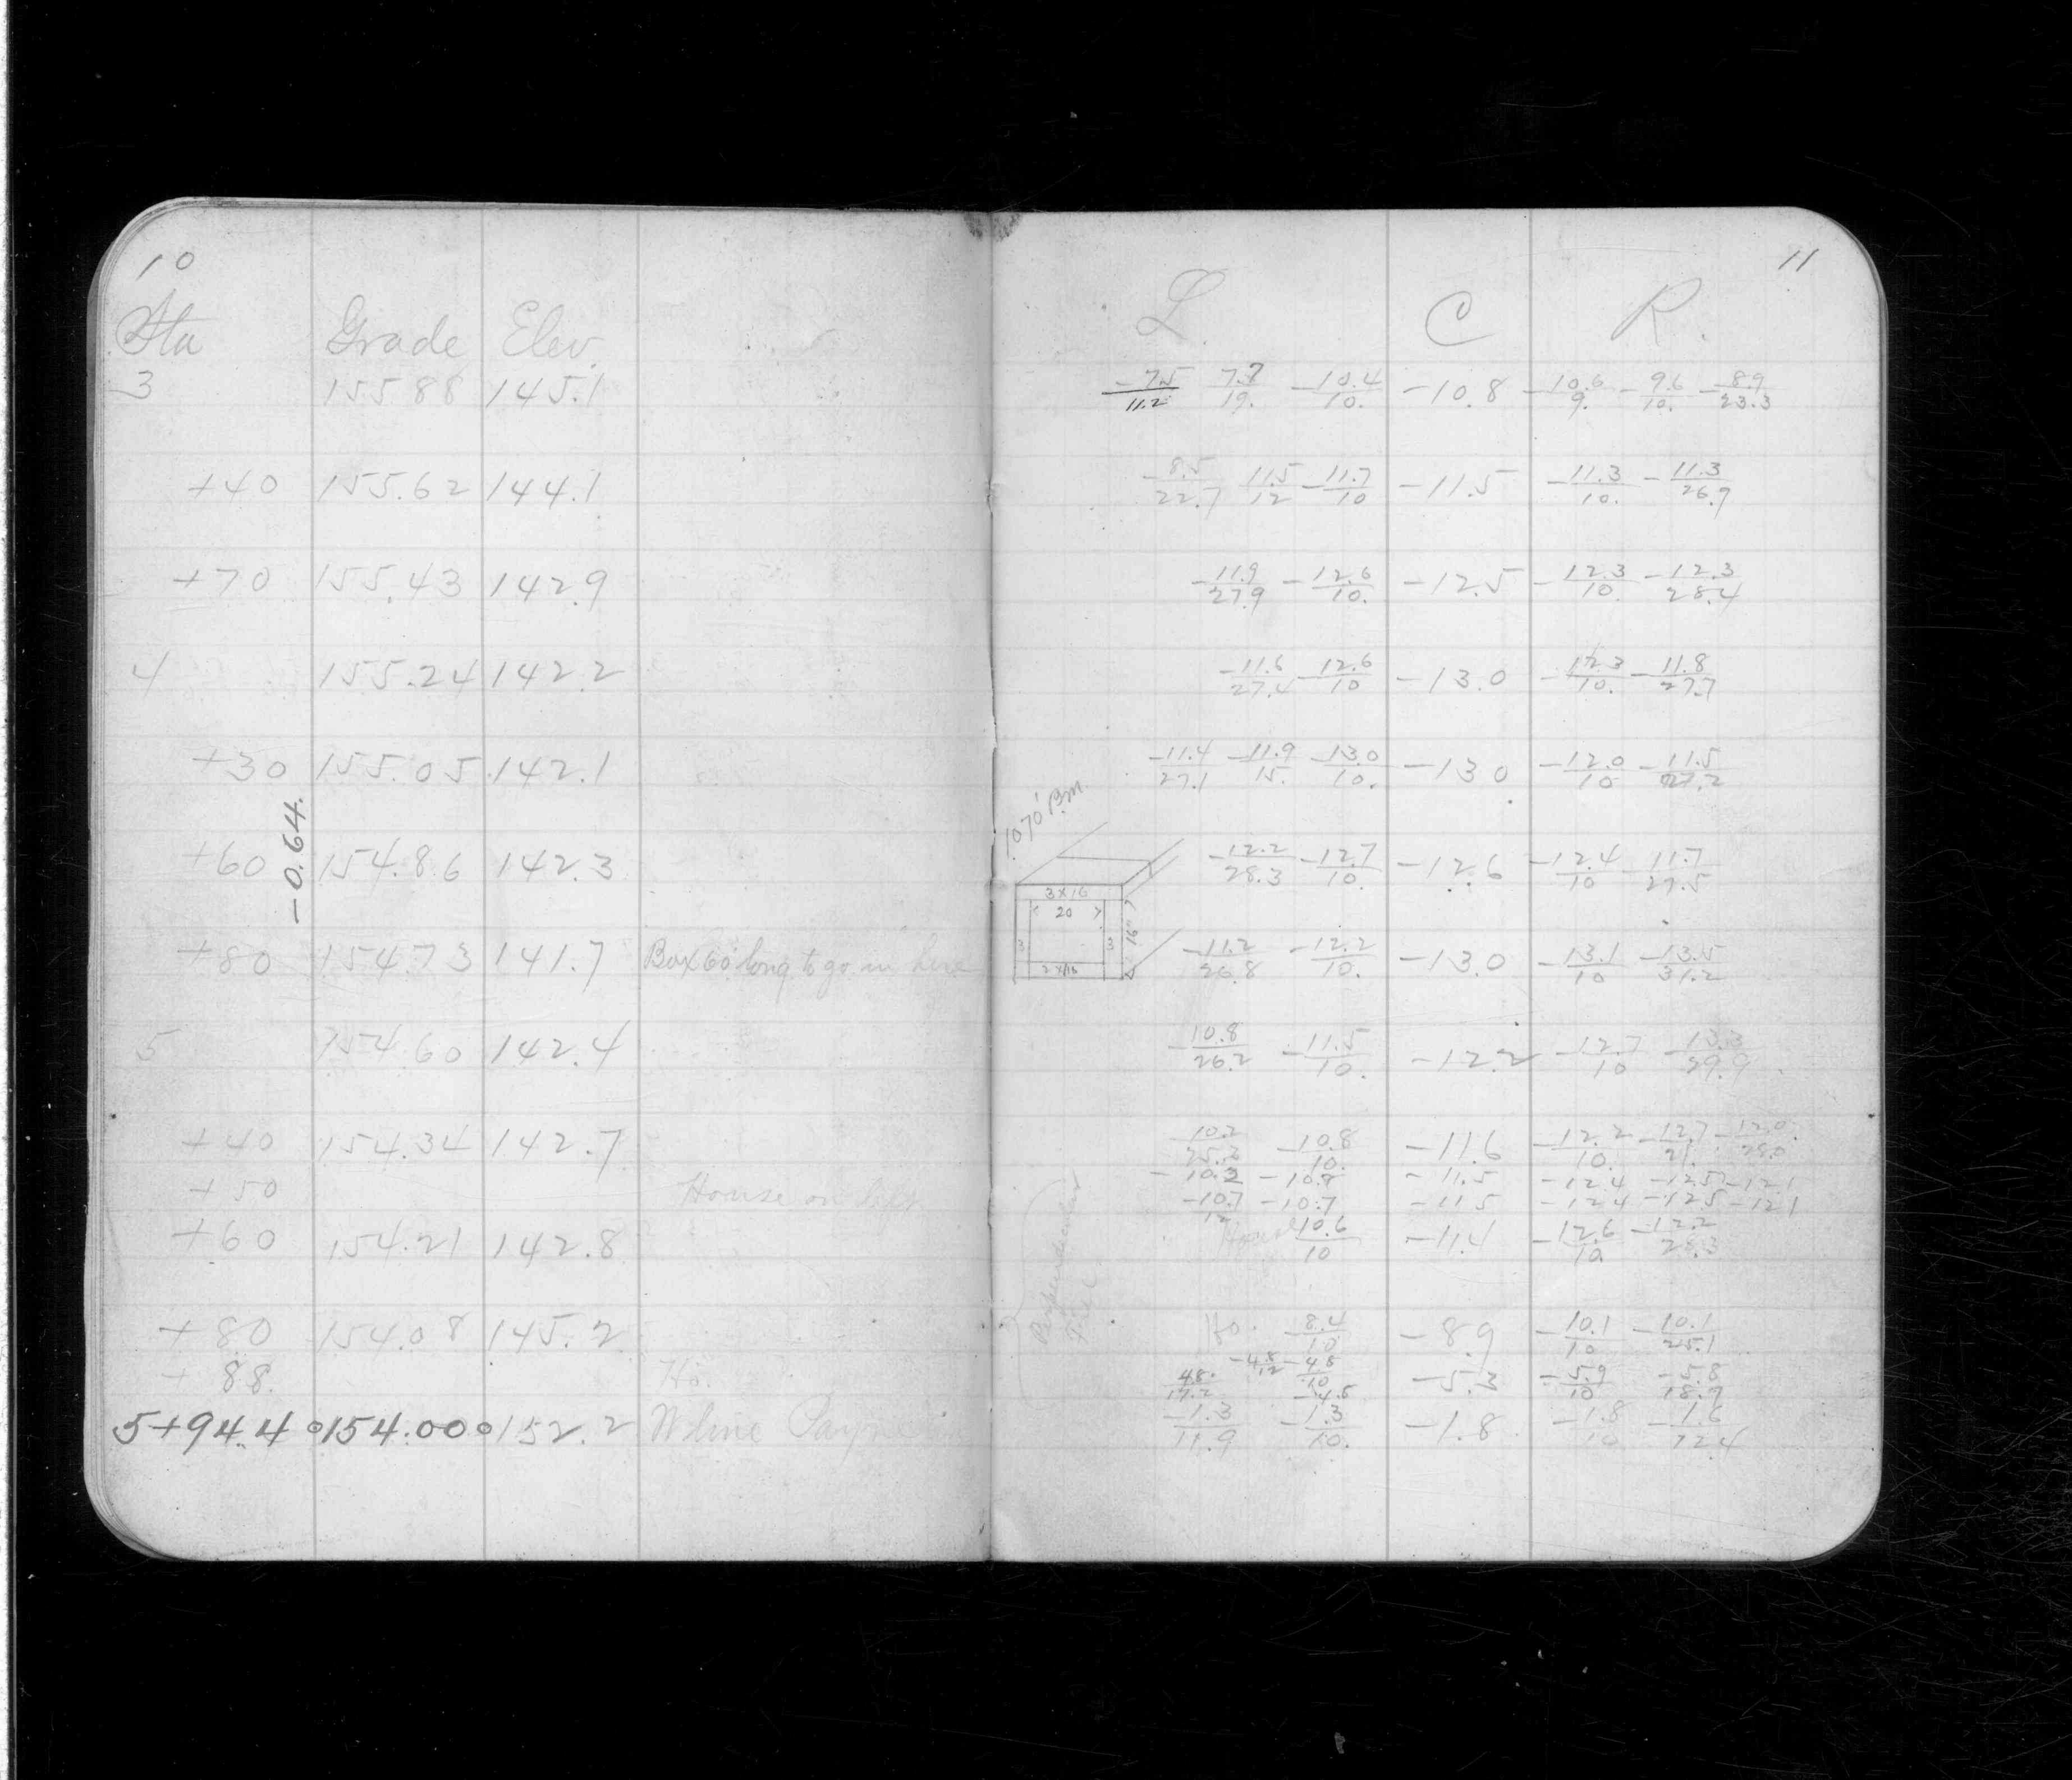 10
Sta Grade Elev.
3 155.88 145.1
+40 155.62 144.1
+70 155.43 142.9
4 155.24 142.2
+30 155.05 142.1
-0.64.
+60 154.86 142.3
+80 154.73 141.7 Box 60' long to go in here
5 154.60 142.4
+40 154.34 142.7
+50 House on left
+60 154.21 142.8
+80 154.08 145.2
+88. Ho.
5+94.4 154.00 152.2 W line Payne
11
L C R.
-7.5/11.2 7.7/19. -10.4/10. -10.8 -10.6/9. -9.6/10. -8.9/23.3
-8.5/22.7 11.5/12 -11.7/10 -11.5 -11.3/10. -11.3/26.9
-11.9/27.9 -12.6/10. -12.5 -12.3/10. -12.3/28.4
-11.6/27.4 -12.6/10 -13.0 -12.3/10. -11.8/27.7
-11.4/27.1 -11.9/15. -13.0/10. -13.0 -12.0/10 -11.5/27.2
1070' B.m.
-12.2/28.3 -12.7/10. -12.6 -12.4/10 -11.7/27.5
3x16
20
3 3 16"
2x16
-11.2/26.8 -12.2/10. -13.0 -13.1/10 -13.5/31.2
-10.8/26.2 -11.5/10. -12.2 -12.7/10 -13.3/29.9
10.2 -10.8/10. -11.6 -12.2/10. -12.7/21. -12.0
-10.2 -10.8 -11.5 -12.4 -12.5 -12.1
-10.7/12 -10.7 -11.5 -12.4 -12.5 -12.1
House 10.6/10 -11.4 -12.6/10. -12.2/28.3
Perpendicular
Ho. -8.4/10 -8.9 -10.1/10 -10.1/25.1
-4.8/12 -4.8/10
4.8/17.2 -4.8 -5.3 -5.9/10 -5.8/18.7
-1.3/11.9 -1.3/10. -1.8 -1.8/10 -1.6/12.4